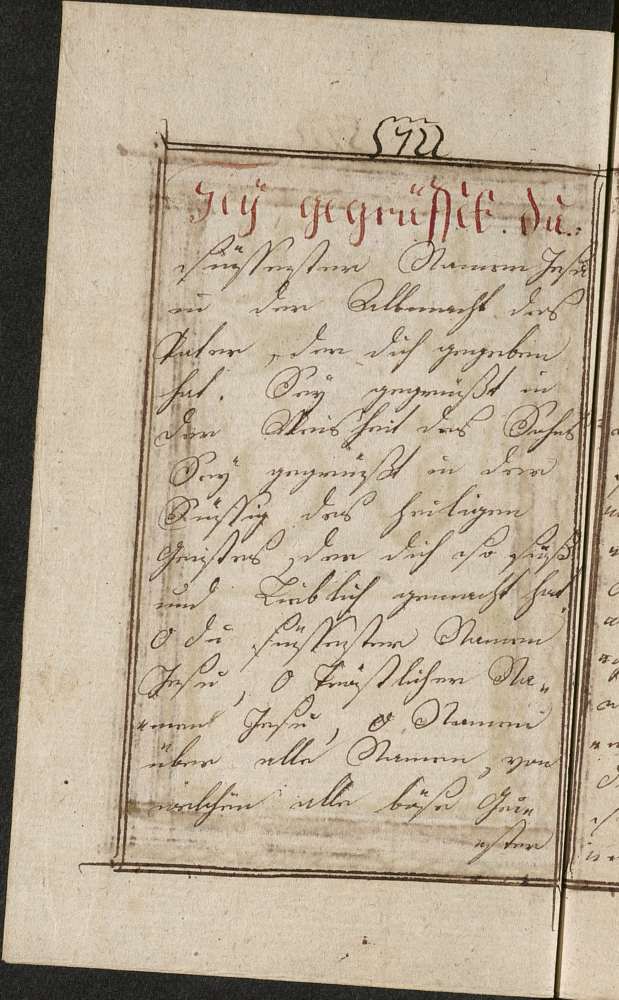 Sey gegrüsset du
süssester Namen Jesu
in der Allmacht des
Vater, der dich gegeben
hat. Sey gegrüßt in
der Weisheit des Sohns
Sey gegrüßt in der
des heiligen
Geistes, der dich so süß
und Lieblich gemacht hat,
O du süssester Namen
Jesu, O Tröstlicher Na„
„men Jesu, O Namen
über alle Namen, von
welchen alle böse Gei„
„ster